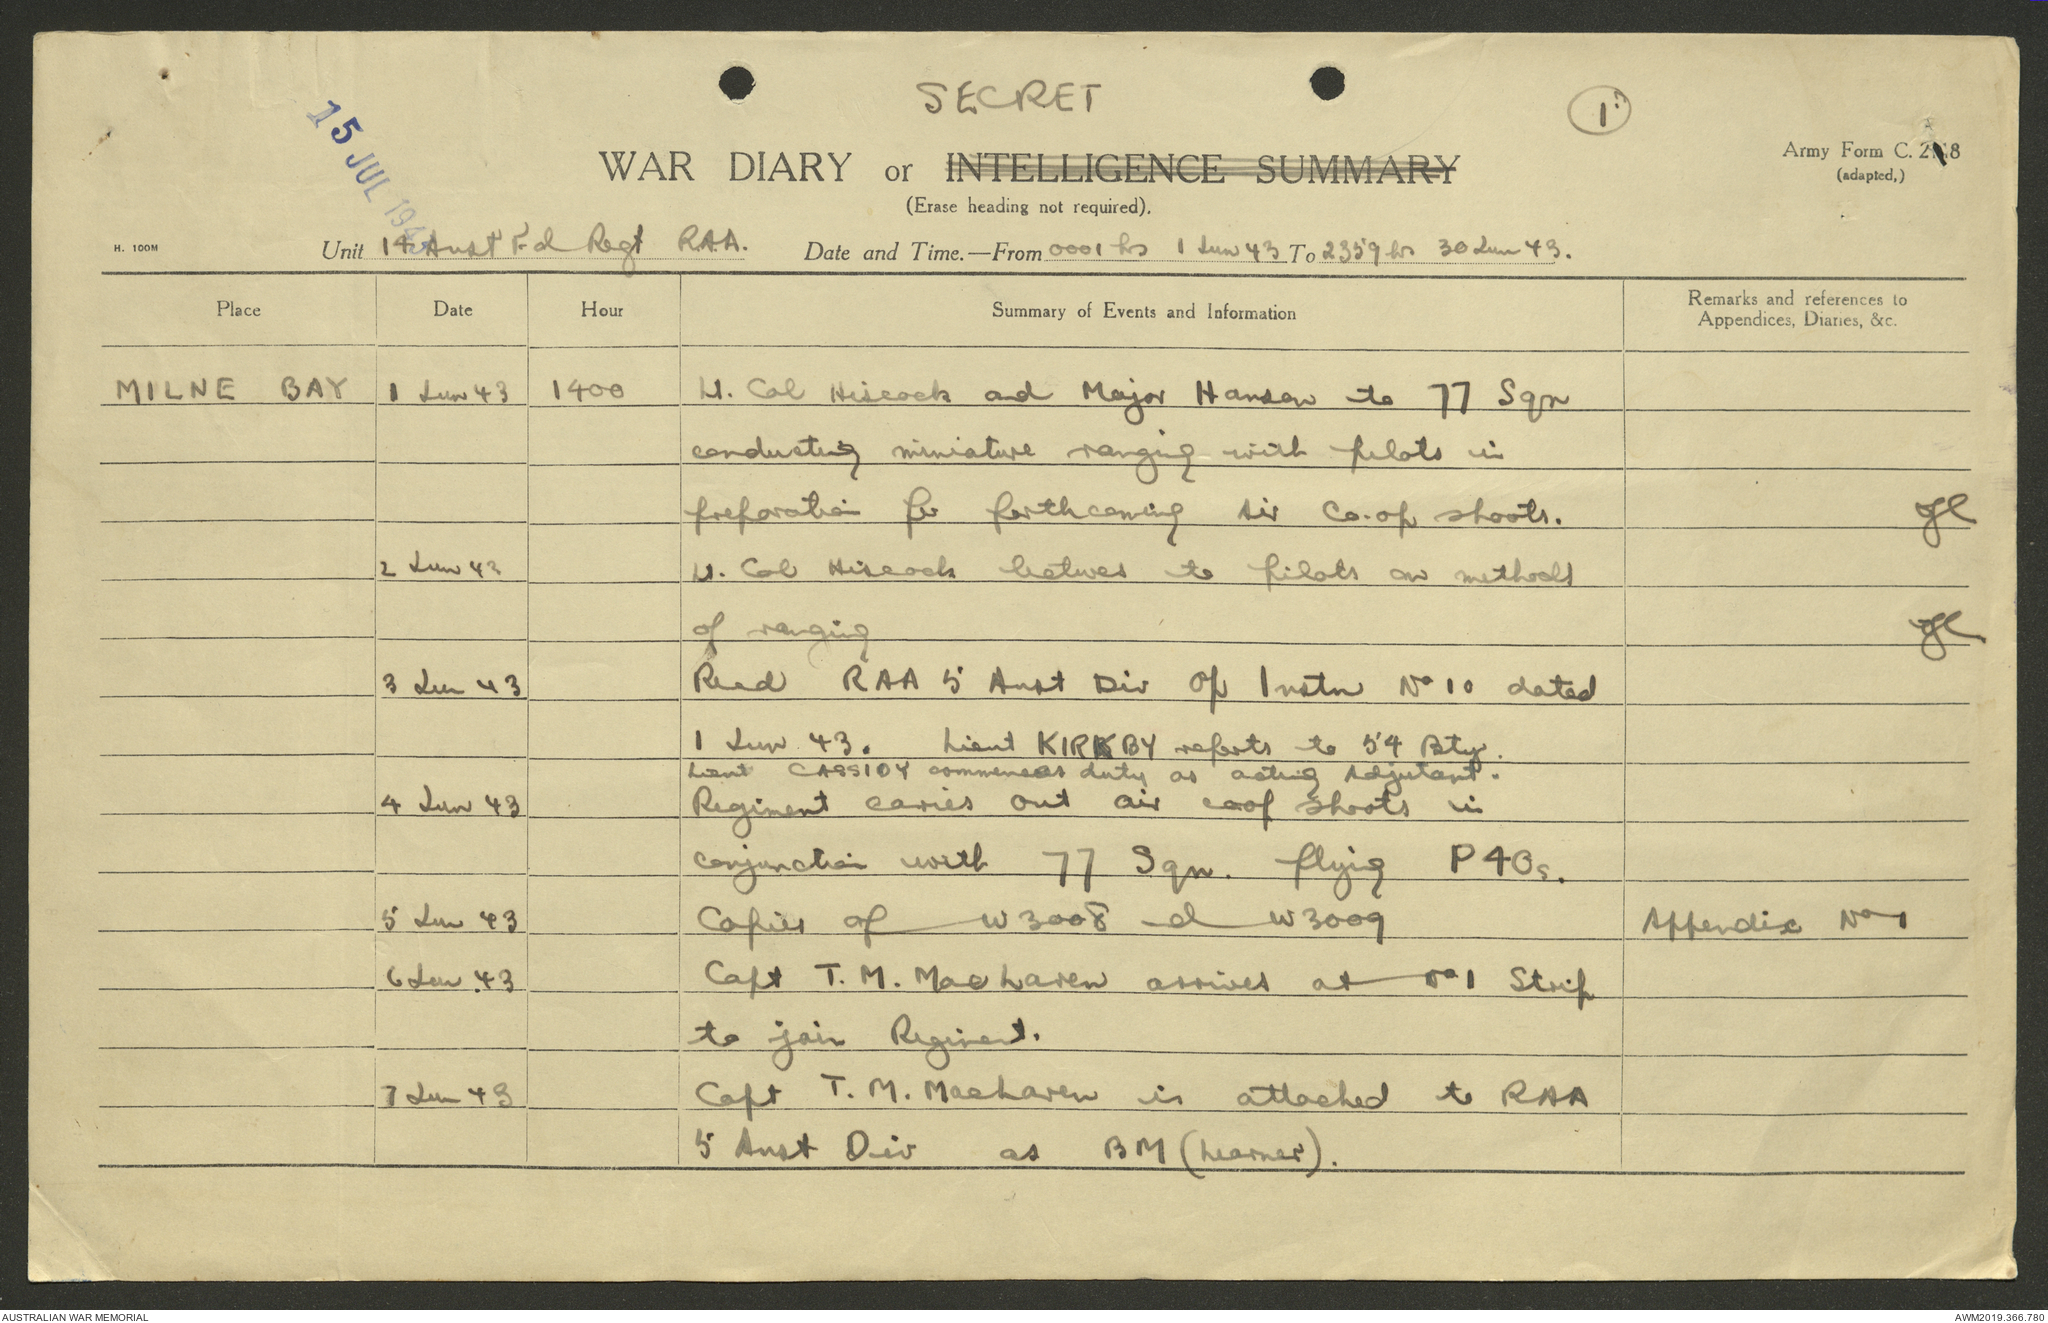 SECRET
1
15 JUL 194
Army Form C. 2118
(adapted,)
WAR DIARY or INTELLIGENCE SUMMARY
(Erase heading not required).
H. 100M
Unit 14 Aust Fd Regt RAA. Date and Time.—From 0001 hrs 1 Jun 43 To 2359 hrs 30 Jun 43.
Place Date Hour Summary of Events and Information Remarks and references to
Appendices, Diaries, &c.
MILNE BAY 1 Jun 43 1400 Lt. Col Hiscock and Major Hanson to 77 Sqn
conducting miniature ranging with pilots in
preparation for forthcoming Air Co-op shoots.
2 Jun 43 Lt. Col Hiscock lectures to pilots on methods
of ranging
3 Jun 43 Recd RAA 5 Aust Div Op Instn No 10 dated
1 Jun 43. Lieut KIRKBY reports to 54 Bty.
Lieut CASSIDY commences duty as acting Adjutant.
4 Jun 43 Regiment carries out air coop shoots in
conjunction with 77 Sqn. flying P40s.
5 Jun 43 Copies of W3008 d W3009 Appendix No 1
6 Jun 43 Capt T. M. MacLaren arrives at No 1 Strip
to join Regiment.
7 Jun 43 Capt T. M. MacLaren is attached to RAA
5 Aust Div as BM (Learner).
AUSTRALIAN WAR MEMORIAL
AWM2019.366.780